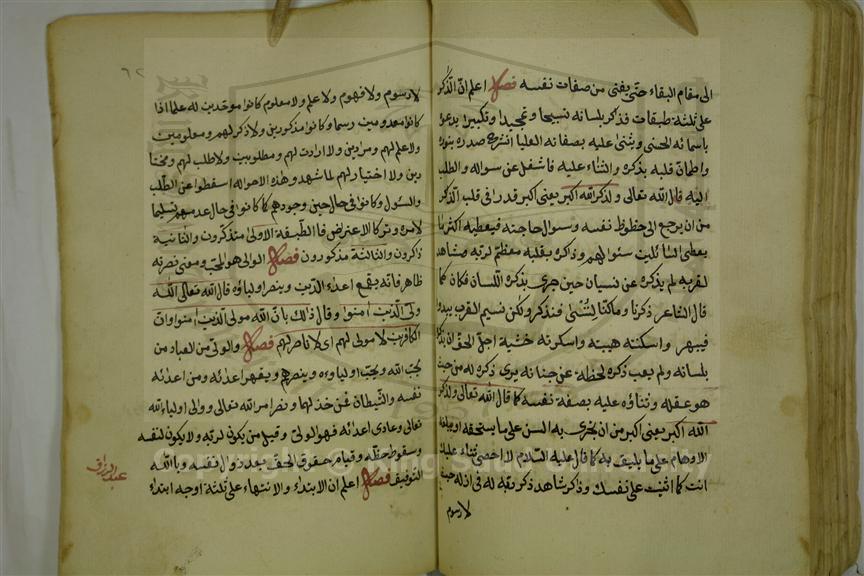 الى مقام البقاء حتى يفنى من صفات نفسه فصل اعلم ان الذكر
على ثلثة طبقات فذكر بلسانه تسبيحا وتمجيدا وتكبيرا يدعو
باسمائه الحسنى ويثنى عليه بصفاته العليا انشرح صدره بنوره
واطمان قلبه بذكره والثناء عليه فاشغل عن سواله والطلب
اليه قال الله تعالى ولذكر الله اكبر يعنى اكبر قدرا فى قلب الذكر
من ان يرجع الى حظوظ نفسه وسوال حاجته فيعطيه اكثر ما
يعطى السائلين سئوالهم وذاكره بقلبه معظم لربه مشاهد
لقربه لم يذكره عن نسيان حين جرى بذكره اللسان فكان كما
قال الشاعر ذكرنا وما كنا لننسى فنذكر ولكن نسيم القرب يبدو
فيبهر واسكنه هيبته واسكرته خشية اجل الحق ان
بلسانه ولم يغب ذكره لحظة عن جنانه يرى ذكره له من حيث
هو عقله وثناؤه عليه بصفة نفسه كما قال الله تعالى ولذكر
الله اكبر يعنى اكبر من ان يجرى به السن على ما يستحقه او
الاوهام على ما يليق به كما قال عليه السلام لا احصى ثناء عليك
انت كما اثنيت على نفسك وذاكر شاهد ذكر ربه له فى ازله حيث
لا رسوم
٦٢
لا رسوم ولا فهوم ولا علم ولا معلوم كانوا موحدين له علما اذا
كانوا معدومين رسما وكانوا مذكورين ولا ذكر لهم ومعلومين
ولا علم لهم ومرادين ولا ارادت لهم ومطلوبين ولا طلب لهم ومختا
رين ولا اختيار لهم لما شهد وهذه الاحواله اسقطوا عن الطلب
والسئول وكانوا فى حال حين وجودهم كما كانوا فى حال عدمهم تسليما
لامره وتركا الاعتراض فا الطبقة الاولى متذكرون والثانية
ذاكرون والثالثة مذكورون فصل الولى هو المحب ومعنى نصرته
ظاهر فانه يقمع اعداء الدين وينصر اولياؤه قال الله تعالى الله
ولى الذين امنوا وقال ذالك بان الله مولى الذين امنوا وان
الكافرين لا مولى لهم اى لا ناصر لهم فصل والولى من العباد من
يحب الله ويحب اولياءه وينصرهم ويقهر اعدائه ومن اعدائه
نفسه والشيطان فمن خذلهما ونصر امر الله تعالى ووالى اولياء الله
تعالى وعادى اعدائه فهو الولى وقيل من يكون لربه ولا يكون لنفسه
وسقوط حظه وقيام حقوق الحق بعد زوال نفسه وبا الله
التوفيق فصل اعلم ان الابتداء والانتهاء على ثلثة اوجه ابتداء
عبد الرزاق
Copyright © King Saud University